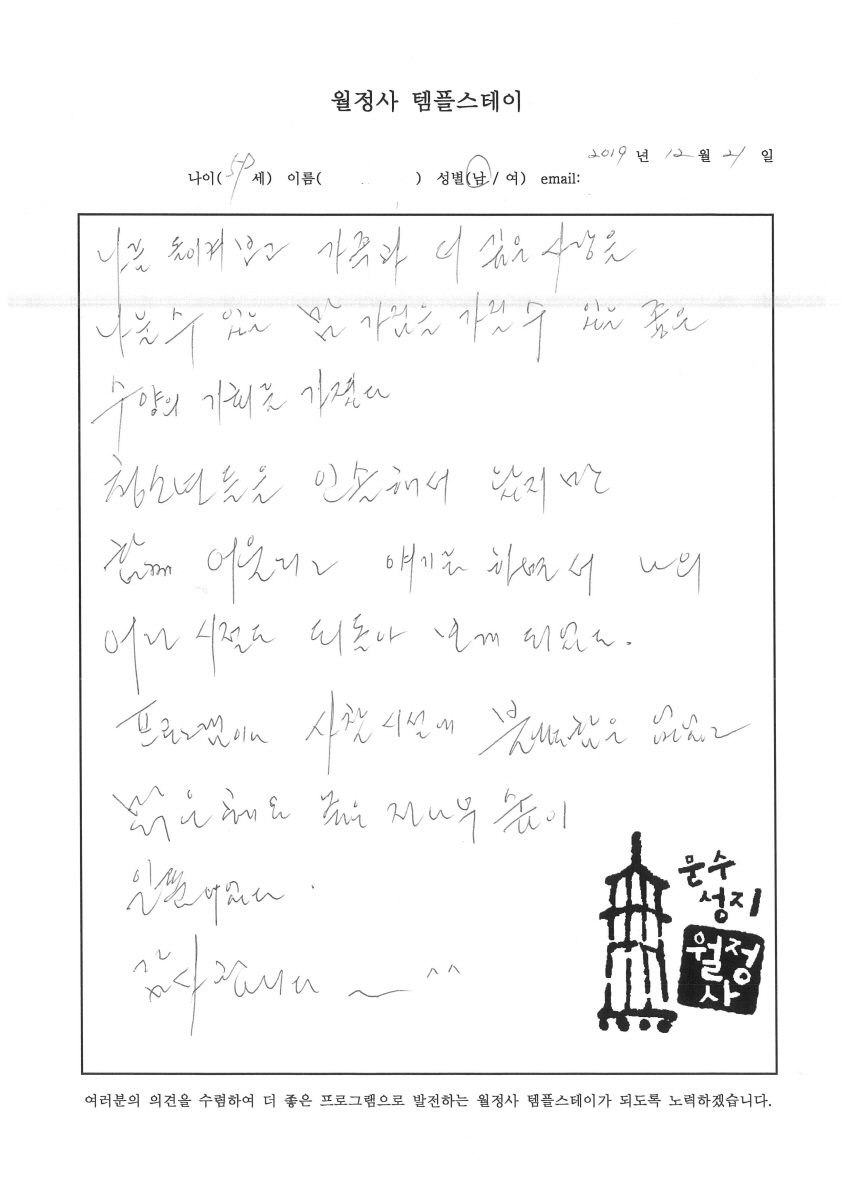 월정사 템플스테이
2019 년 12 월 21 일
나이( 세) 이름( ) 성별(남 / 여) email:
나를 돌이켜 보고 가족과 더 깊은 사랑을
나눌 수 있는 맘 가짐을 가질 수 있는 좋은
수양의 기회를 가졌다
청소년들을 인솔해서 왔지만
함께 어울리고 얘기를 하면서 나의
어린 시절도 되돌아 보게 되었다.
프로그램이나 사찰시설에 불편함은 없었고
맑은 좋은 전나무 숲이
일품이었다.
감사합니다 ~ ^^
문수
성지
월정
사
여러분의 의견을 수렴하여 더 좋은 프로그램으로 발전하는 월정사 템플스테이가 되도록 노력하겠습니다.